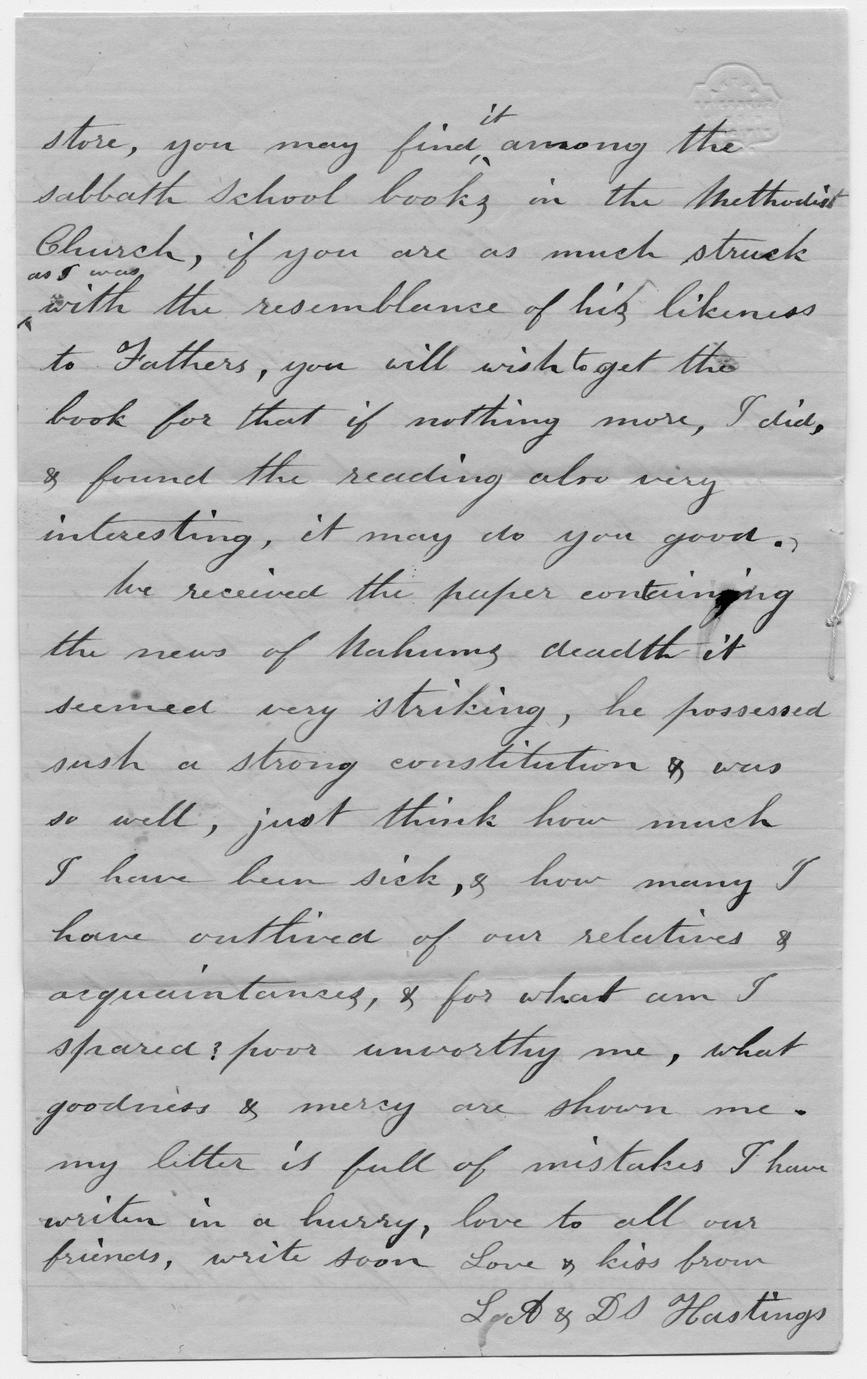 store, you may find it among the
sabbath school books in the Methodist
Church, if you are as much struck
as I was
with the resemblance of his likeness
to Fathers, you will wish to get the
book for that if nothing more, I did,
& found the reading also very
interesting, it may do you good.
We received the paper containing
the news of Nahums deadth it
seemed very striking, he possessed
sush a strong constitution & was
so well, just think how much
I have been sick, & how many I
have outlived of our relatives &
acquaintances, & for what am I
spared? poor unworthy me, what
goodness & mercy are shown me.
my letter is full of mistakes I have
writen in a hurry, love to all our
friends, write soon Love & kiss from
L A & D S Hastings